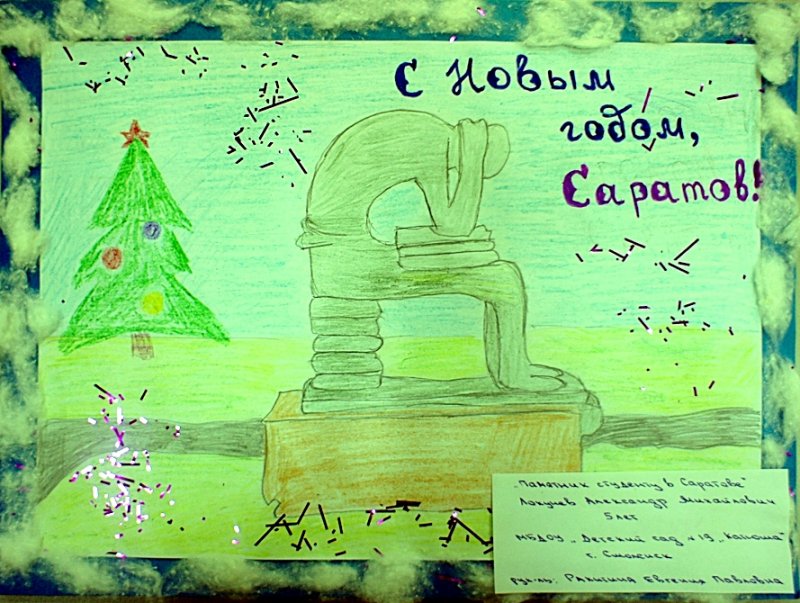 С Новым
годом,
Саратов!
„Памятник студенту в Саратове"
Александр Михайлович
5 лет
МБДОУ „Детский сад №19 „Катюша"
г. Смоленск
рук-ль: Ракитина Евгения Павловна